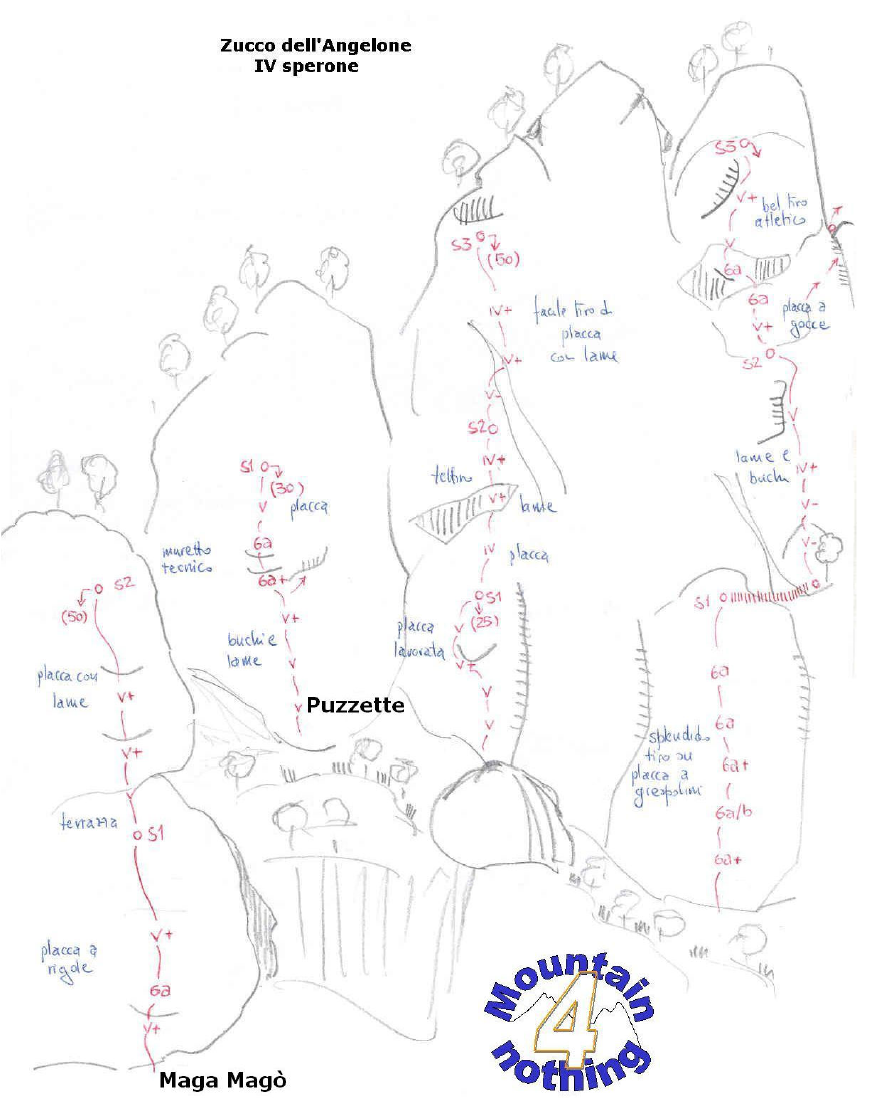 Zucco dell'Angelone
IV sperone
S3
V+
bel tiro
atletico
V
6a
6a
V+
placca a
gocce
S2
V
lame e
buchi
IV+
V-
V-
S1
6a
6a
6a+
6a/b
6a+
splendido
tiro su
placca a
S3
(50)
IV+
facile tiro di
placca
con lame
IV+
V-
S2
IV+
V+
lame
IV
placca
S1
(25)
V
placca
lavorata
V+
V
V
S1
(30)
V
placca
6a
muretto
tecnico
6a+
V+
buchi e
lame
V
V
Puzzette
S2
(50)
placca con
lame
V+
V+
V
terrazza
S1
V+
placca a
rigole
6a
V+
Maga Magò
Mountain
4
nothing